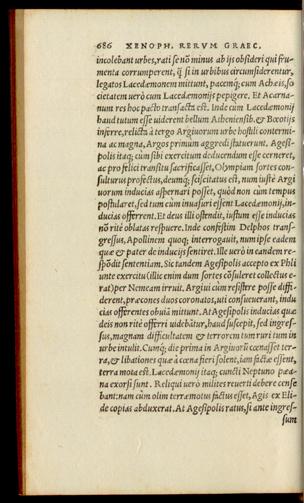 686 XENOPH. RERVM GRAEC.
incolebant urbes, rati se nō minus ab ijs obsideri qui fru-
menta corrumperent, q̃ si in urbibus circumsiderentur,
legatos Lacedæmonem mittunt, pacemq́; cum Achæis, so
cietatem uerò cum Lacedæmonijs pepigere. Et Acarna-
num res hoc pacto transacta est. Inde cum Lacedæmonij
haud tutum esse uiderent bellum Atheniensib. & Bœotijs
inferre, relicta à tergo Argiuorum urbe hostili contermi-
na ac magna, Argos primum aggredi statuerunt. Agesi-
polis itaq; cùm sibi exercitum deducendum esse cerneret,
ac pro felici transitu sacrificasset, Olympiam sortes con-
sulturus profectus, deumq́; sciscitatus est, num iustè Argi
uorum inducias aspernari posset, quòd non cùm tempus
postularet, sed tum cùm inuasuri essent Lacedæmonij, in-
ducias offerrent. Et deus illi ostendit, iustum esse inducias
nō ritè oblatas respuere. Inde confestim Delphos trans-
gressus, Apollinem quoq; interrogauit, num ipse eadem
quæ & pater de inducijs sentiret. Ille uerò in eandem re-
spōdit sententiam. Sic tandem Agesipolis accepto ex Phli
unte exercitu (illic enim dum sortes cōsuleret collectus e-
rat) per Nemeam irruit. Argiui cùm resistere posse diffi-
derent, præcones duos coronatos, uti consueuerant, indu
cias offerentes obuiā mittunt. At Agesipolis inducias quæ
deis non ritè offerri uidebātur, haud suscepit, sed ingres-
sus, magnam difficultatem & terrorem tum ruri tum in
urbe intulit. Cunq́; die prima in Argiuorū cœnasset ter-
ra, & libationes quæ à cœna fieri solent, iam factæ essent,
terra mota est. Lacedæmonij itaq; cuncti Neptuno pæa-
na exorsi sunt. Reliqui uerò milites reuerti debere cense
bant: nam cùm olim terræmotus factus esset, Agis ex Eli-
de copias abduxerat. At Agesipolis ratus, si ante ingres-
sum